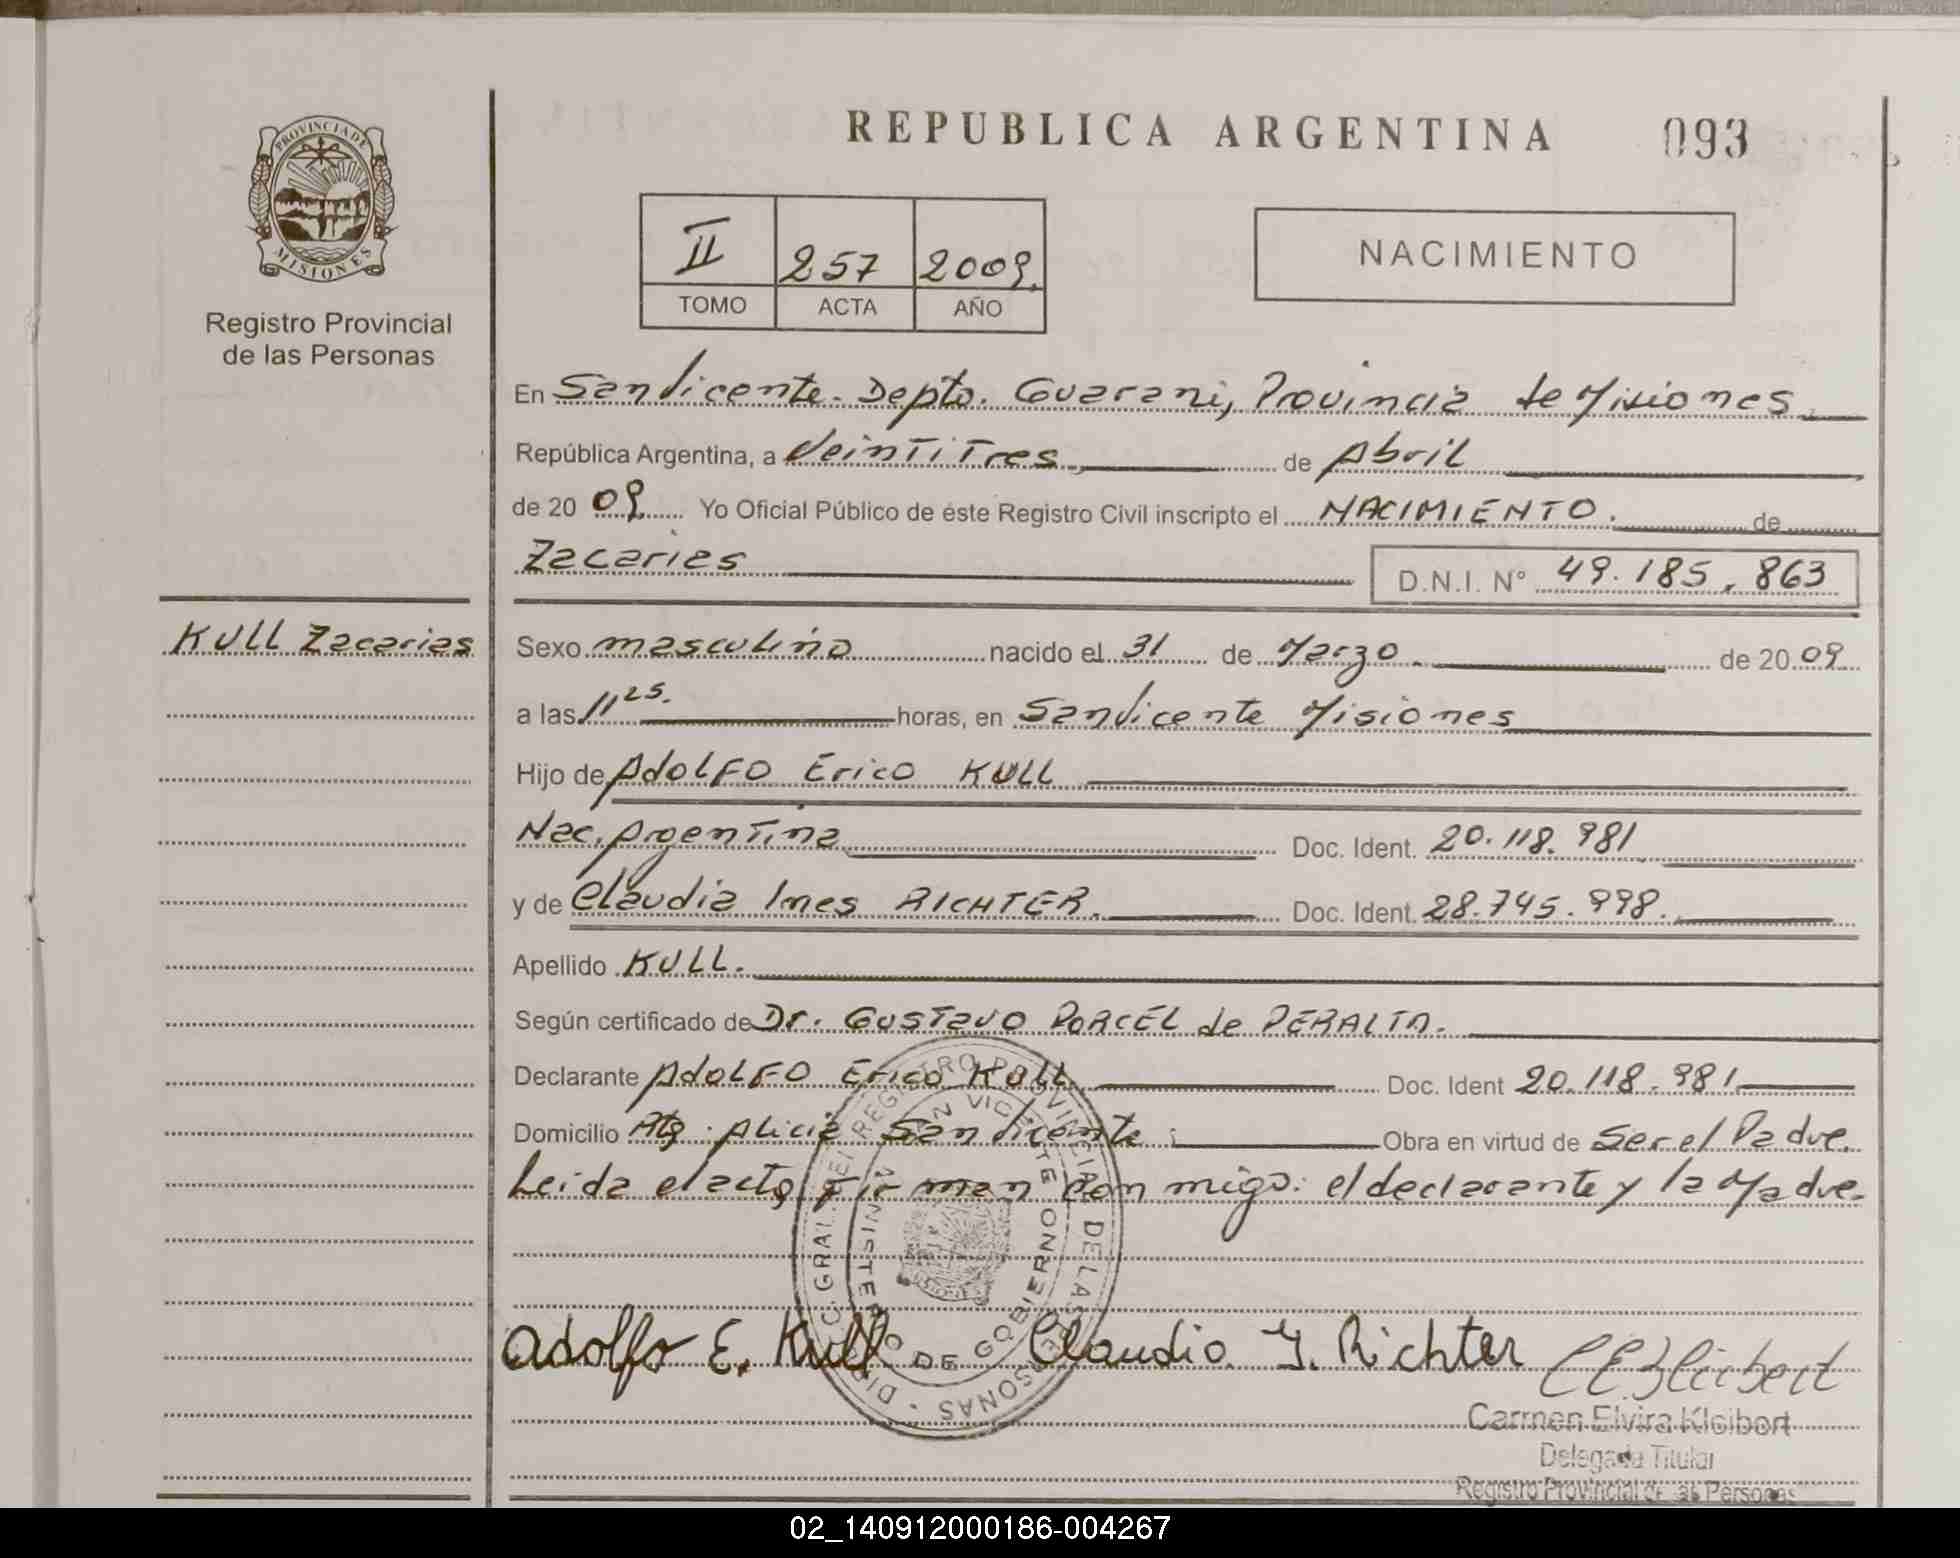 REPUBLICA ARGENTINA 093
PROVINCIA DE
MISIONES
Registro Provincial
de las Personas
II 257 2009.
TOMO ACTA AÑO
NACIMIENTO
En San Vicente. Depto. Guarani, Provincia de Misiones
República Argentina, a Veintitres de Abril
de 20 09 Yo Oficial Público de éste Registro Civil inscripto el NACIMIENTO. de
Zacarias D.N.I. N° 49.185.863
KULL Zacarias
Sexo masculino nacido el 31 de Marzo de 20 09
a las 11 25. horas, en San Vicente Misiones
Hijo de Adolfo Erico KULL
Nac. Argentina Doc. Ident. 20.118.981
y de Claudia Ines RICHTER. Doc. Ident. 28.745.998.
Apellido KULL.
Según certificado de Dr. Gustavo PORCEL de PERALTA.
Declarante Adolfo Erico Kull Doc. Ident 20.118.981
Domicilio Pto. Alicia San Vicente Obra en virtud de Ser el Padre.
Leida el acta, firman con migo: el declarante y la Madre.
DIREC. GRAL. DEL REGISTRO PROVINCIAL DE LAS PERSONAS
SAN VICENTE
MINISTERIO DE GOBIERNO
Adolfo E. Kull Claudia I. Richter
Carmen Elvira Kleibert
Delegada Titular
Registro Provincial de las Personas
02_140912000186-004267